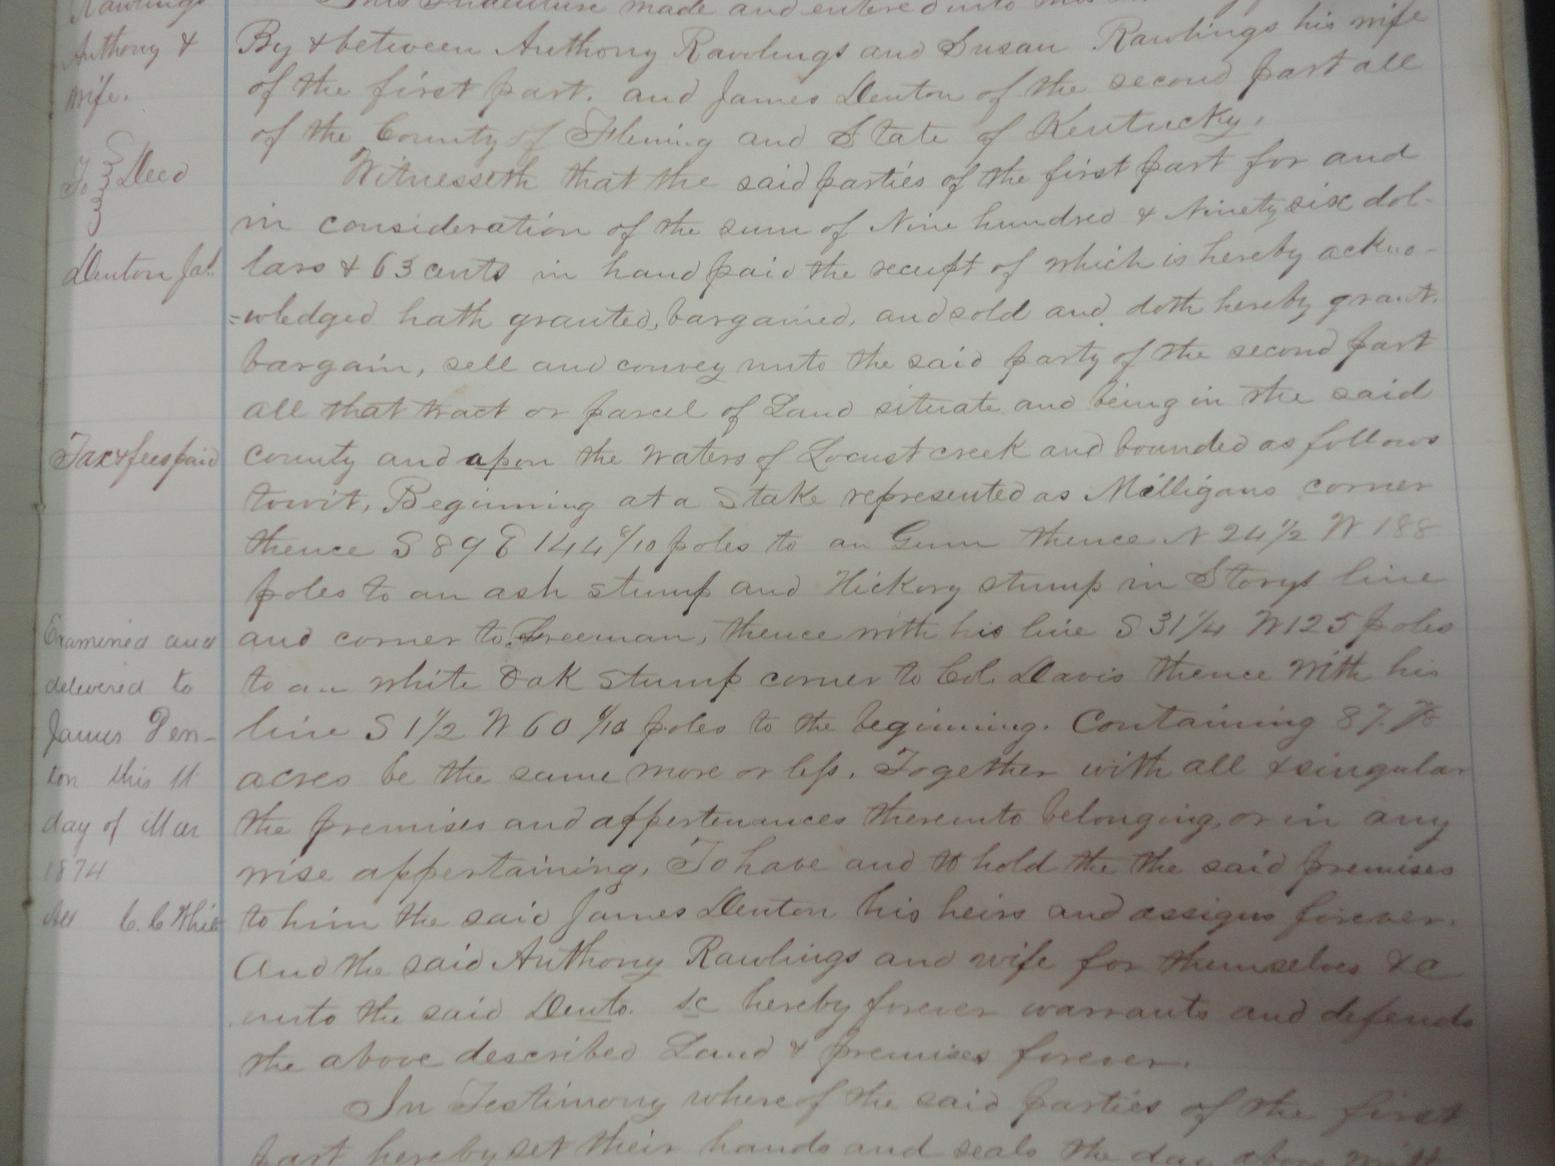 Rawlings
Anthony &
wife.
To Deed
Denton Jas.
Tax & fees paid
Examined and
delivered to
James Den-
ton this 11
day of Mar
1874
C. C. Whit
This Indenture made and entered into this
By & between Anthony Rawlings and Susan Rawlings his wife
of the first part. and James Denton of the second part all
of the County of Fleming and State of Kentucky.
Witnesseth that the said parties of the first part for and
in consideration of the sum of Nine hundred & Ninety six dol-
lars & 63 cents in hand paid the receipt of which is hereby ackno-
=wledged hath granted, bargained, and sold and doth hereby grant.
bargain, sell and convey unto the said party of the second part
all that tract or parcel of Land situate and being in the said
county and upon the waters of Locust creek and bounded as follows
towit, Beginning at a Stake represented as Milligans corner
thence S 89 E 144 6/10 poles to an Gum thence N 24 1/2 W 188
poles to an ash stump and Hickory stump in Storys line
and corner to Freeman, thence with his line S 31 1/4 W 125 poles
to an white Oak stump corner to Col. Davis thence with his
line S 1 1/2 W 60 6/10 poles to the beginning. Containing 87
acres be the same more or less. Together with all & singular
the premises and appertenances thereunto belonging, or in any
wise appertaining. To have and to hold the the said premises
to him the said James Denton his heirs and assigns forever.
And the said Anthony Rawlings and wife for themselves &c
unto the said Dento. &c hereby forever warrants and defends
the above described Land & premises forever.
In Testimony whereof the said parties of the first
part hereby set their hands and seals the day above